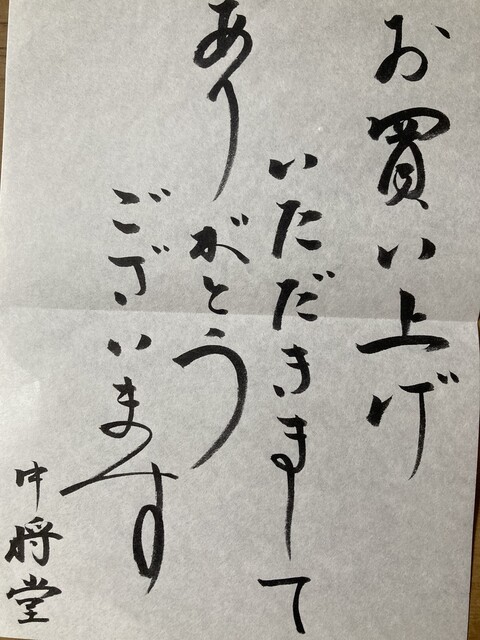 お買い上げ
いただきまして
ありがとう
ございます
中将堂